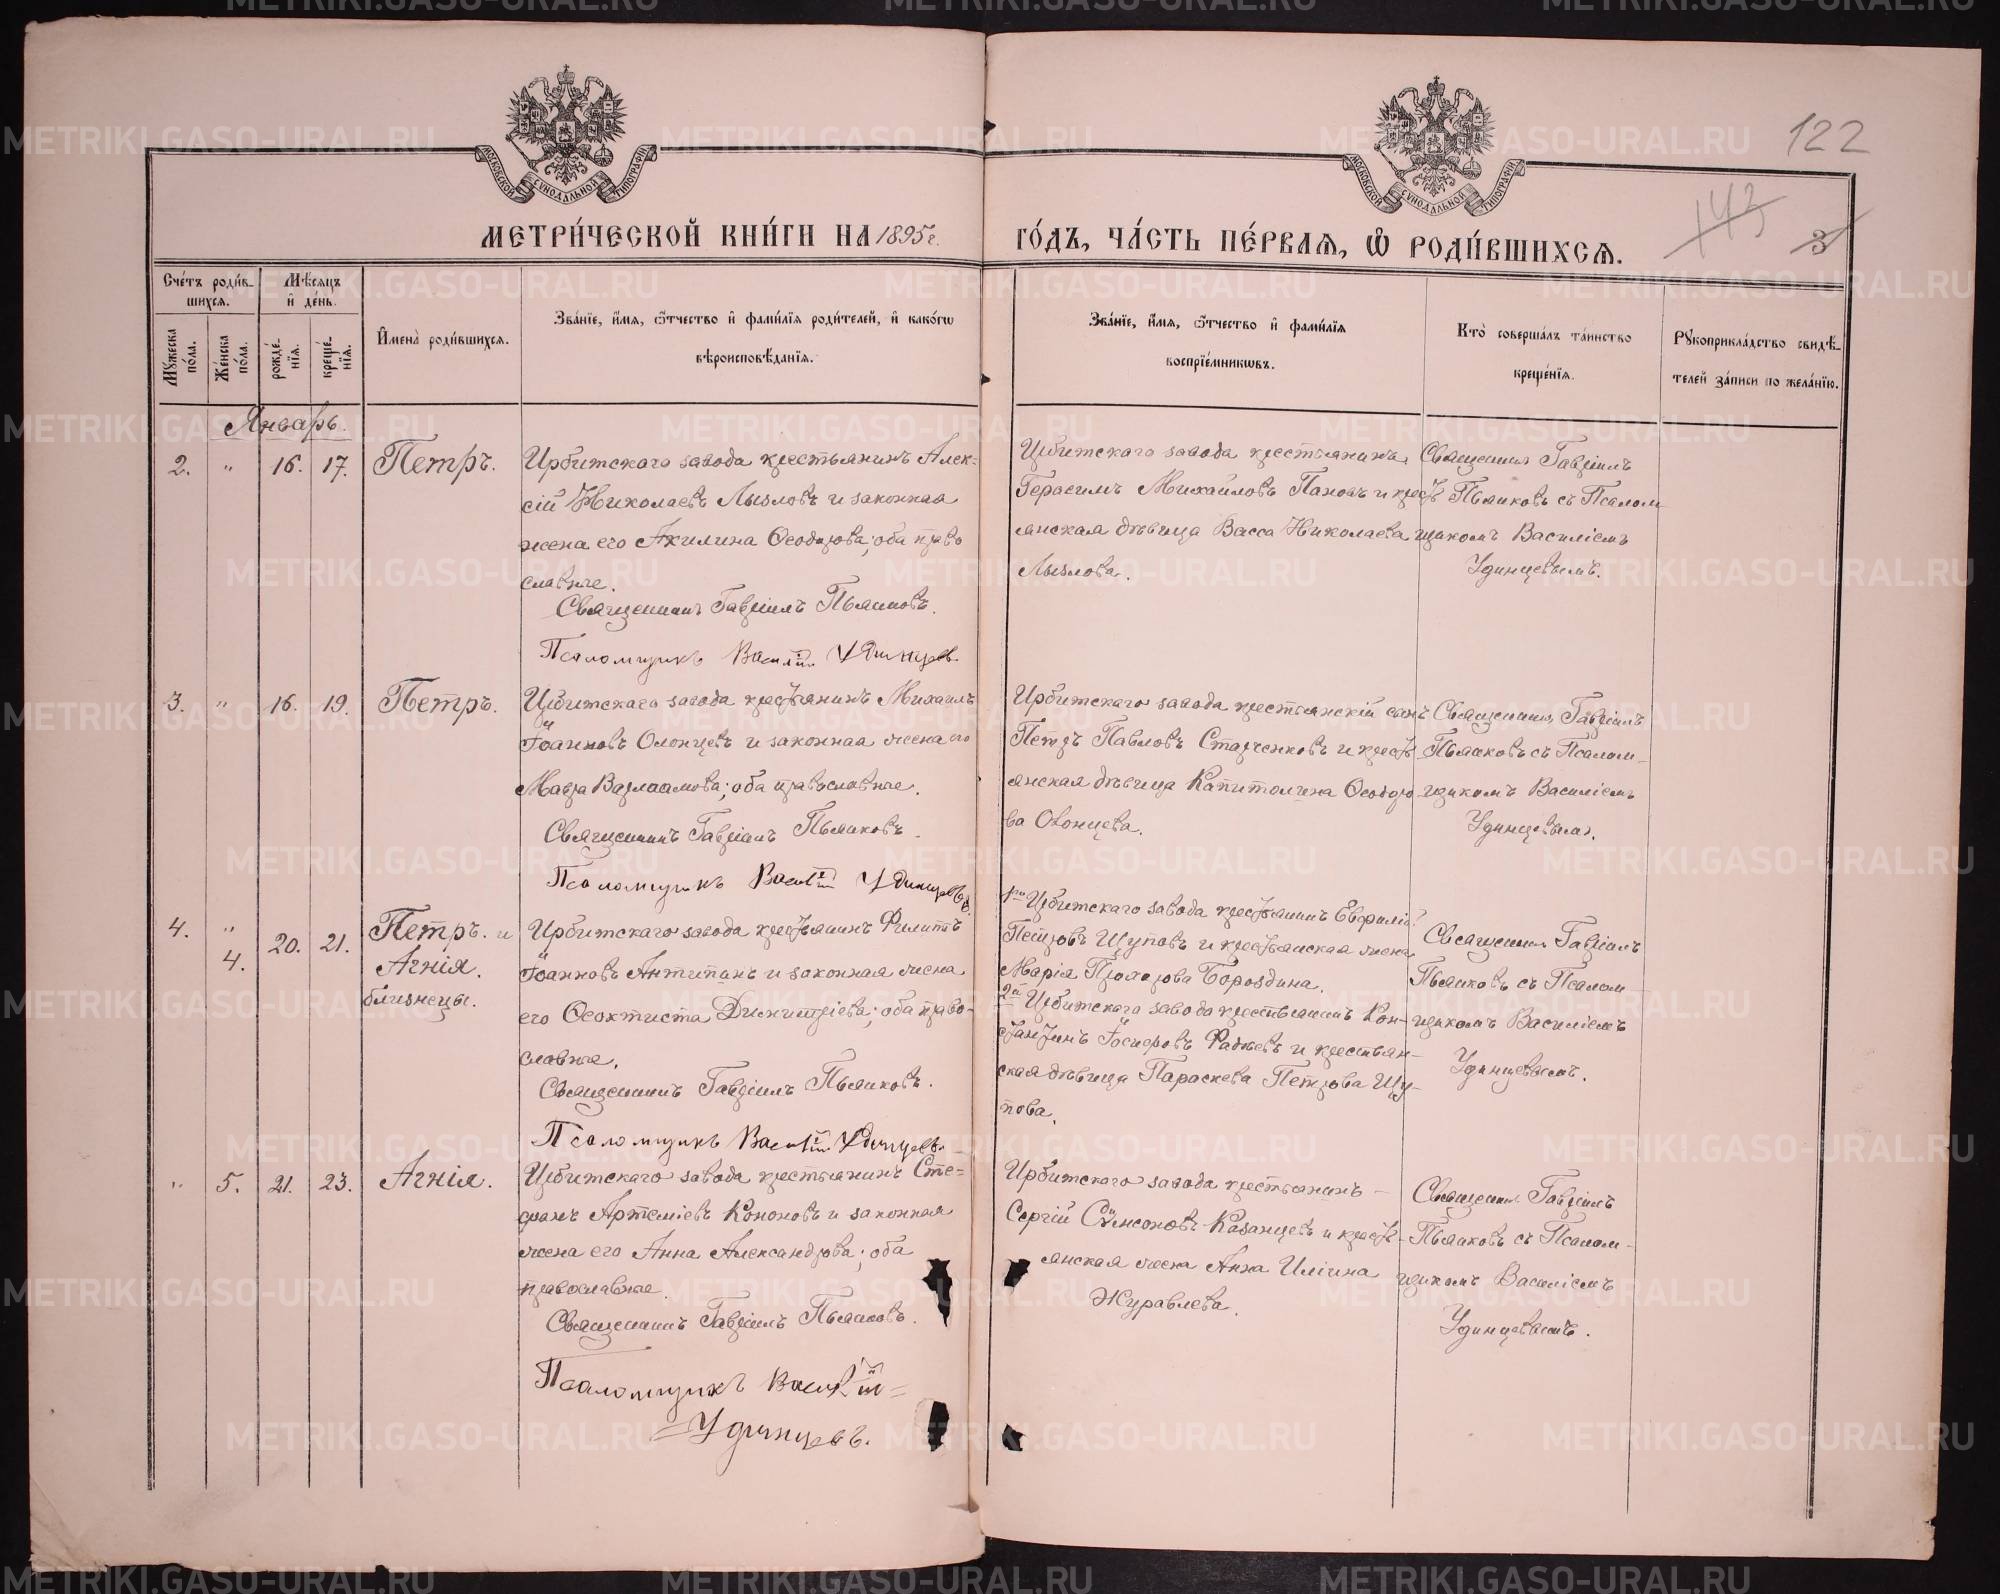 122
143
3
МОСКОВСКОЙ СУНОДАЛЬНОЙ ТИПОГРАФІИ
МОСКОВСКОЙ СУНОДАЛЬНОЙ ТИПОГРАФІИ
МЕТРИ́ЧЕСКОЙ КНИ́ГИ НА 1895 г.
ГО́ДЪ, ЧА́СТЬ ПЕ́РВАЯ, Ѿ РОДИ́ВШИХСЯ.
Сче́тъ роди́вшихся.
Мужеска по́ла.
Же́нска по́ла.
Мѣ́сяцъ и де́нь.
рожде́нія.
креще́нія.
Имена̀ роди́вшихся.
Зва́ніе, и́мя, ѻ́тчество и фами́лія роди́телей, и како́гѡ
вѣроисповѣ́данія.
Зва́ніе, и́мя, ѻ́тчество и фами́лія
воспріе́мникѡвъ.
Кто̀ соверша́лъ та́инство
креще́нія.
Рукоприкла́дство свидѣ́-
телей за́писи по жела́нію.
Январь.
2. " 16. 17. Петръ.
Ирбитскаго завода крестьянинъ Алек-
сій Николаевъ Лызловъ и законная
жена его Акилина Ѳеодорова; оба право
славные.
Священникъ Гавріилъ Пьянковъ.
Псаломщикъ Василій Удинцевъ.
Ирбитскаго завода крестьянинъ
Герасимъ Михайловъ Пановъ и крестъ
янская дѣвица Васса Николаева
Лызлова.
Священникъ Гавріилъ
Пьянковъ съ Псалом
щикомъ Василіемъ
Удинцевымъ.
3. " 16. 19. Петръ.
Ирбитскаго завода крестьянинъ Михаилъ
Іоанновъ Олонцевъ и законная жена его
Мавра Варлаамова; оба православные.
Священникъ Гавріилъ Пьянковъ.
Псаломщикъ Василій Удинцевъ.
Ирбитскаго завода крестьянскій сынъ
Петръ Павловъ Старченковъ и кресть
янская дѣвица Капитолина Ѳеодоро
ва Олонцева.
Священникъ Гавріилъ
Пьянковъ съ Псалом-
щикомъ Василіемъ
Удинцевымъ.
4. " 4. 20. 21. Петръ. и
Агнія.
близнецы.
Ирбитскаго завода крестьянинъ Филиппъ
Іоанновъ Антипинъ и законная жена
его Ѳеоктиста Димитріева; оба право-
славные.
Священникъ Гавріилъ Пьянковъ.
Псаломщикъ Василій Удинцевъ.
1го Ирбитскаго завода крестьянинъ
Петровъ Щуповъ и крестьянская жена
Марія Прохорова Бороздина.
2й Ирбитскаго завода крестьянинъ Кон-
стантинъ Іосифовъ Фадѣевъ и крестьян-
ская дѣвица Параскева Петрова Щу-
пова.
Священникъ Гавріилъ
Пьянковъ съ Псалом
щикомъ Василіемъ
Удинцевымъ.
" 5. 21. 23. Агнія.
Ирбитскаго завода крестьянинъ Сте=
фанъ Артеміевъ Кононовъ и законная
жена его Анна Александрова; оба
православные.
Священникъ Гавріилъ Пьянковъ.
Псаломщикъ Василій=
=Удинцевъ.
Ирбитскаго завода крестьянинъ-
Сергій Сѵмеоновъ Казанцевъ и кресть-
янская жена Анна Иліина
Журавлева.
Священникъ Гавріилъ
Пьянковъ съ Псалом-
щикомъ Василіемъ
Удинцевымъ.
METRIKI.GASO-URAL.RU